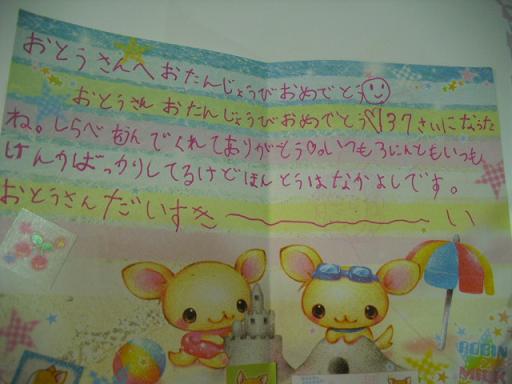 おとうさんへ おたんじょうびおめでとう
おとうさん おたんじょうびおめでとう♡37さいになったね。しらべ
ってくれてありがとう♡いつも
いつも
けんかばっかりしてるけどほんとうはなかよしです。
おとうさんだいすき〜い
ROBIN
MILK